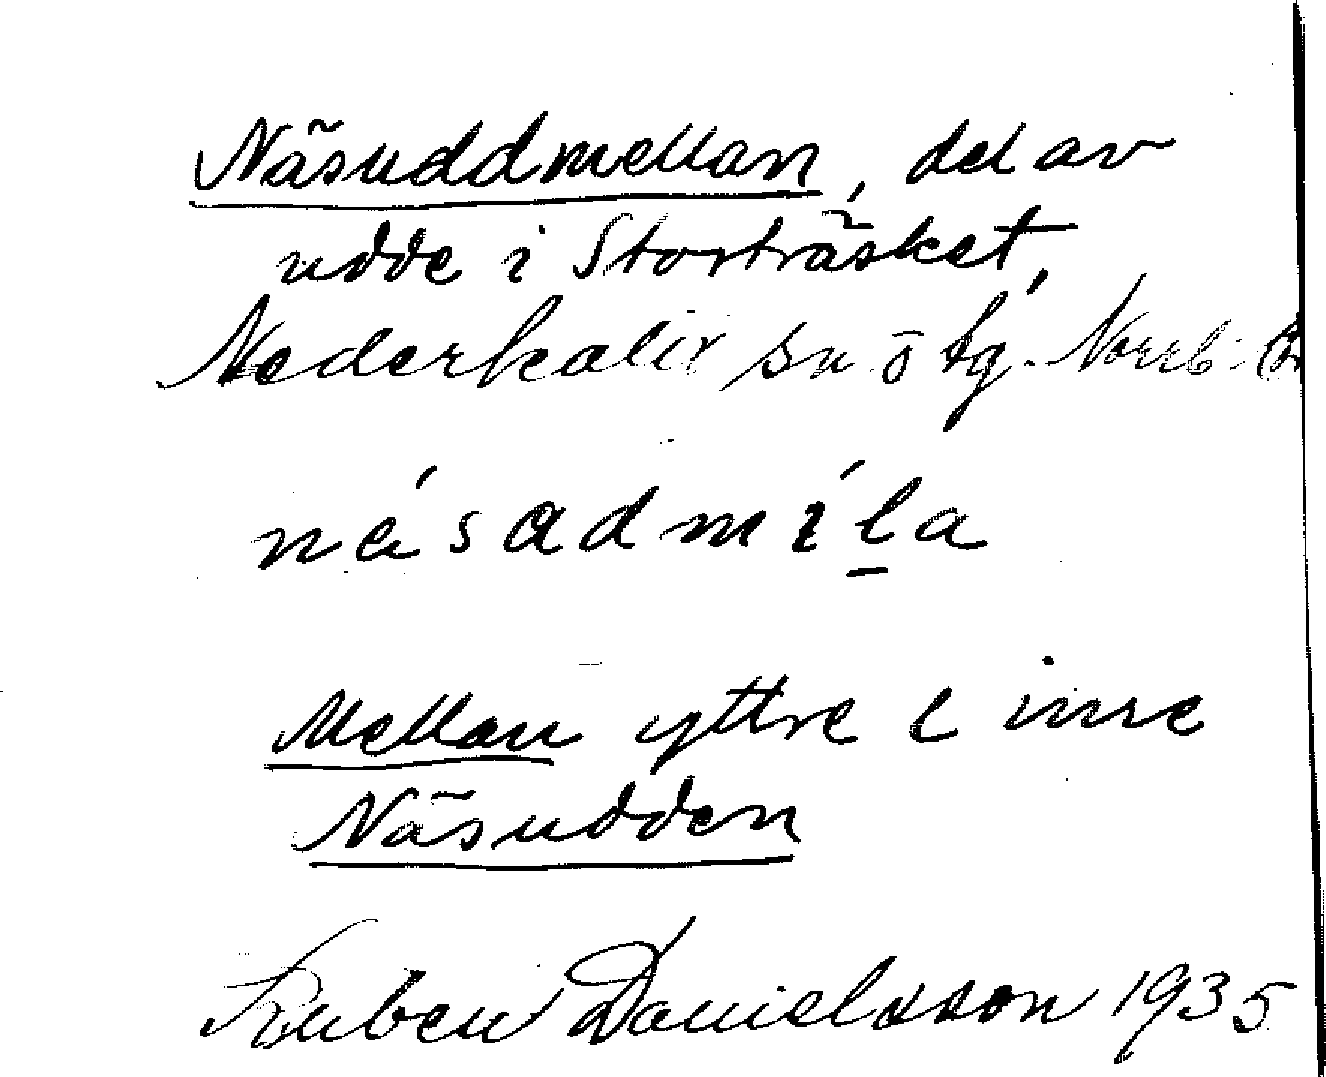 Näsuddmellan, del av
udde i Storträsket,
Nederkalix sn ö tg. Norrb.
näsadmila
Mellan yttre o inre
Näsudden
Ruben Danielsson 1935